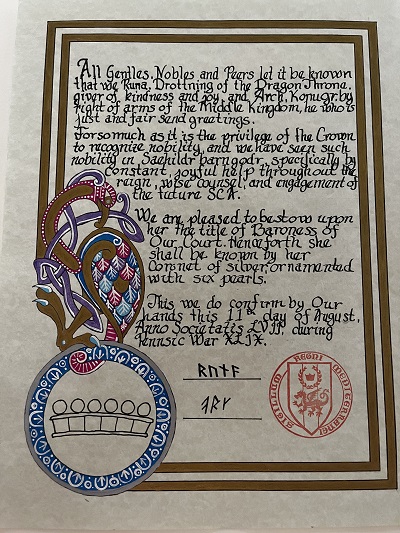 All Gentles, Nobles and Peers let it be known
that we Runa, Drottning of the Dragon Throne,
giver of kindness and joy, and Arch, Konugr by
right of arms of the Middle Kingdom, he who is
just and fair send greetings.
Forsomuch as it is the privilege of the Crown
to recognize nobility, and we have seen such
nobility in Saehildr barngodr, specifically by
constant, joyful help throughout the
reign, wise counsel, and engagement of
the future SCA.
We are pleased to bestow upon
her the title of Baroness of
Our Court. Henceforth she
shall be known by her
coronet of silver, ornamented
with six pearls.
This we do confirm by Our
hands this 11th day of August,
Anno Societatis LVII, during
Pennsic War XLIX.
ᚱᚢᚾᚨ
SIGILLUM REGNI MEDITERRANEI